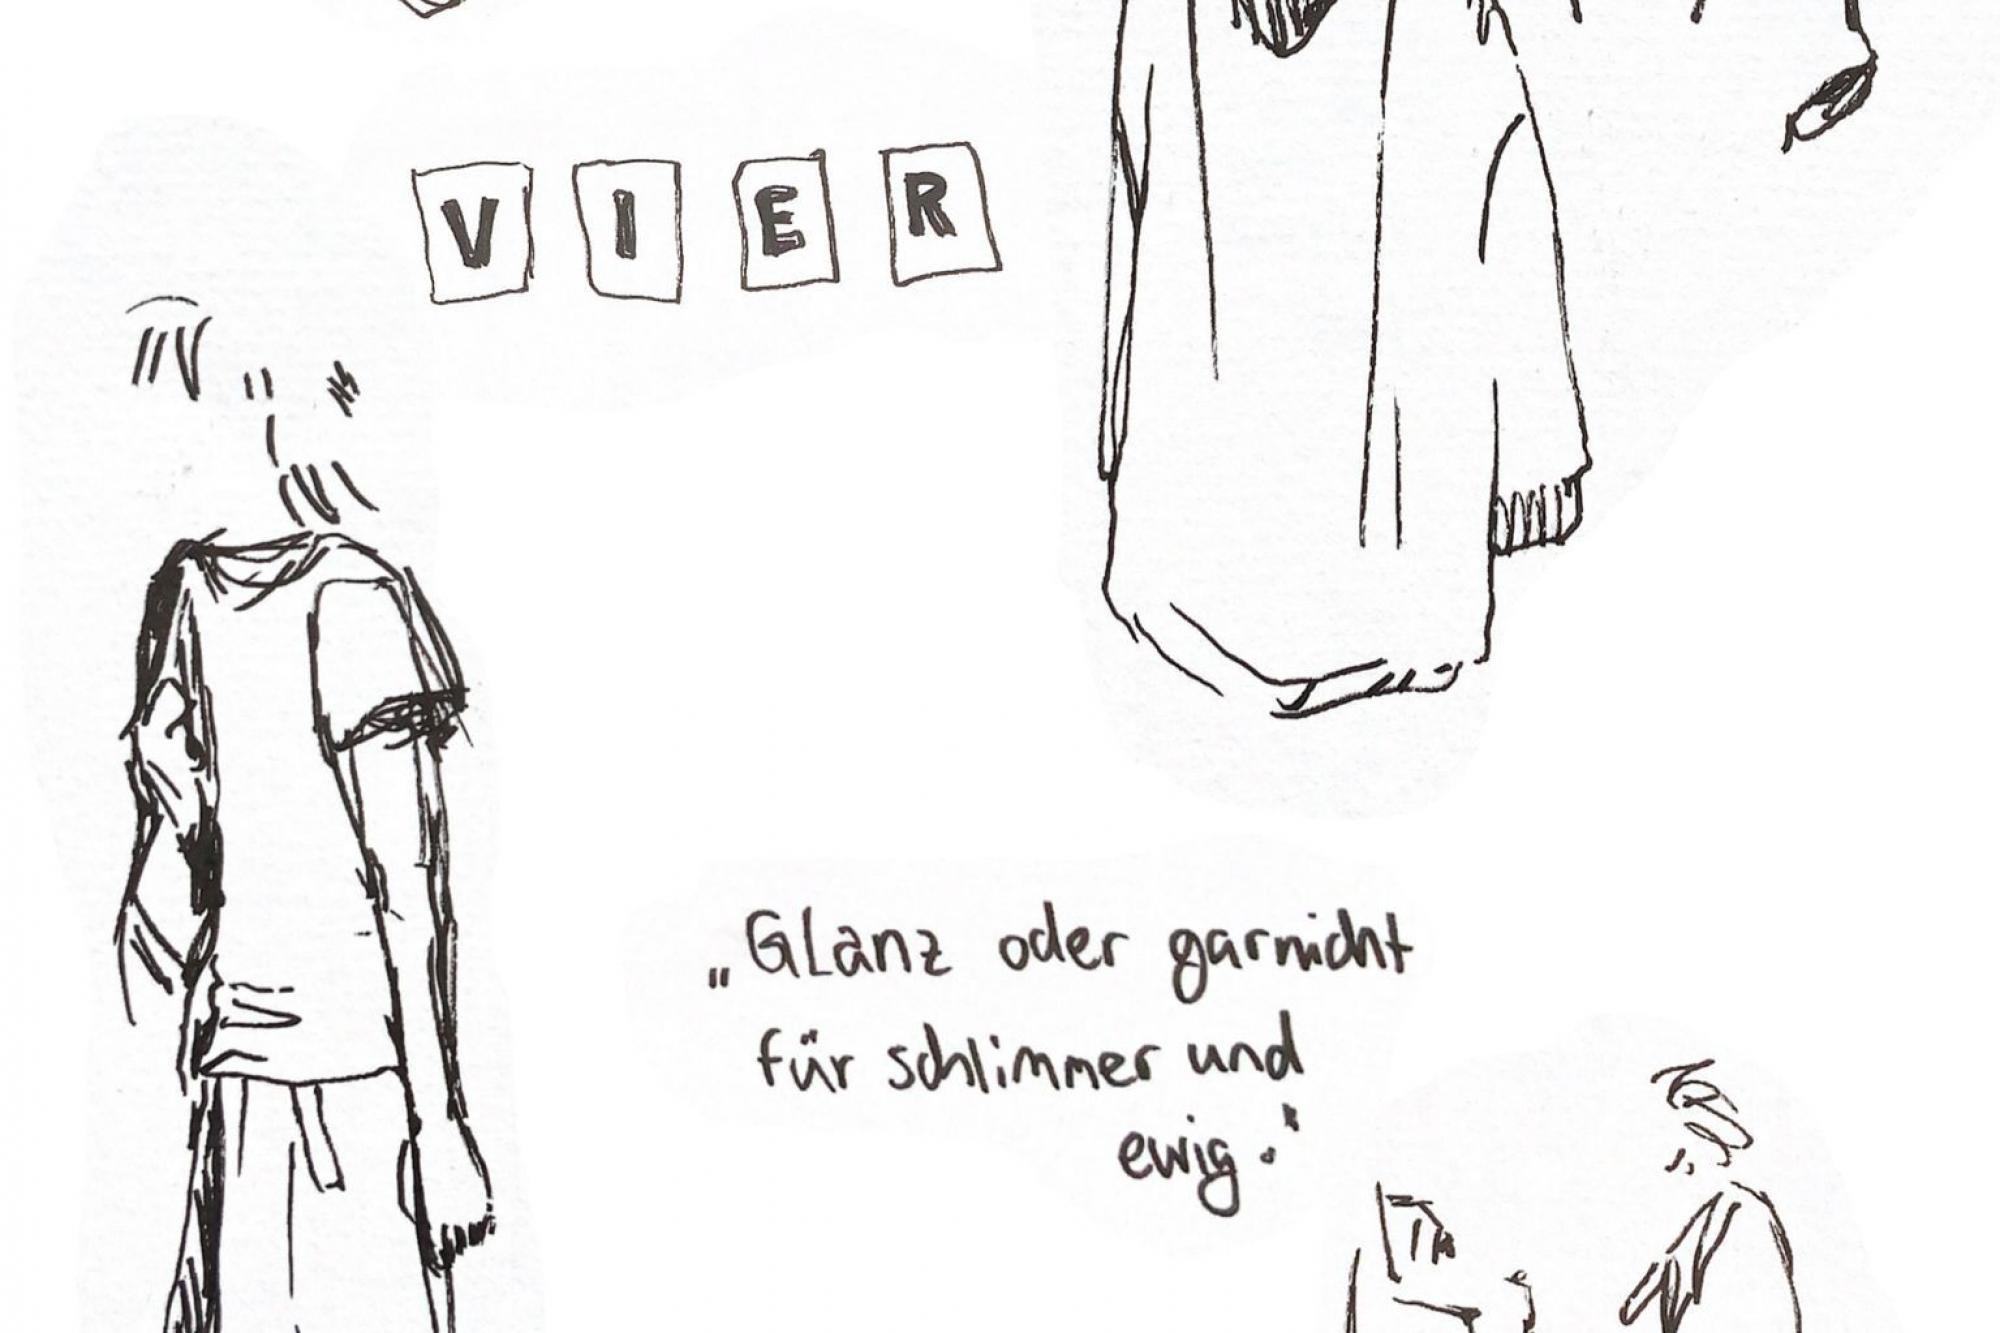 VIER
„Glanz oder garnicht
für schlimmer und
ewig."